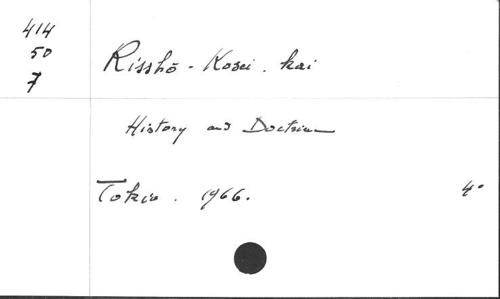 414
50
7
Risshō-Kosei.kai
History and Doctrine
Tokio. 1966.
4°